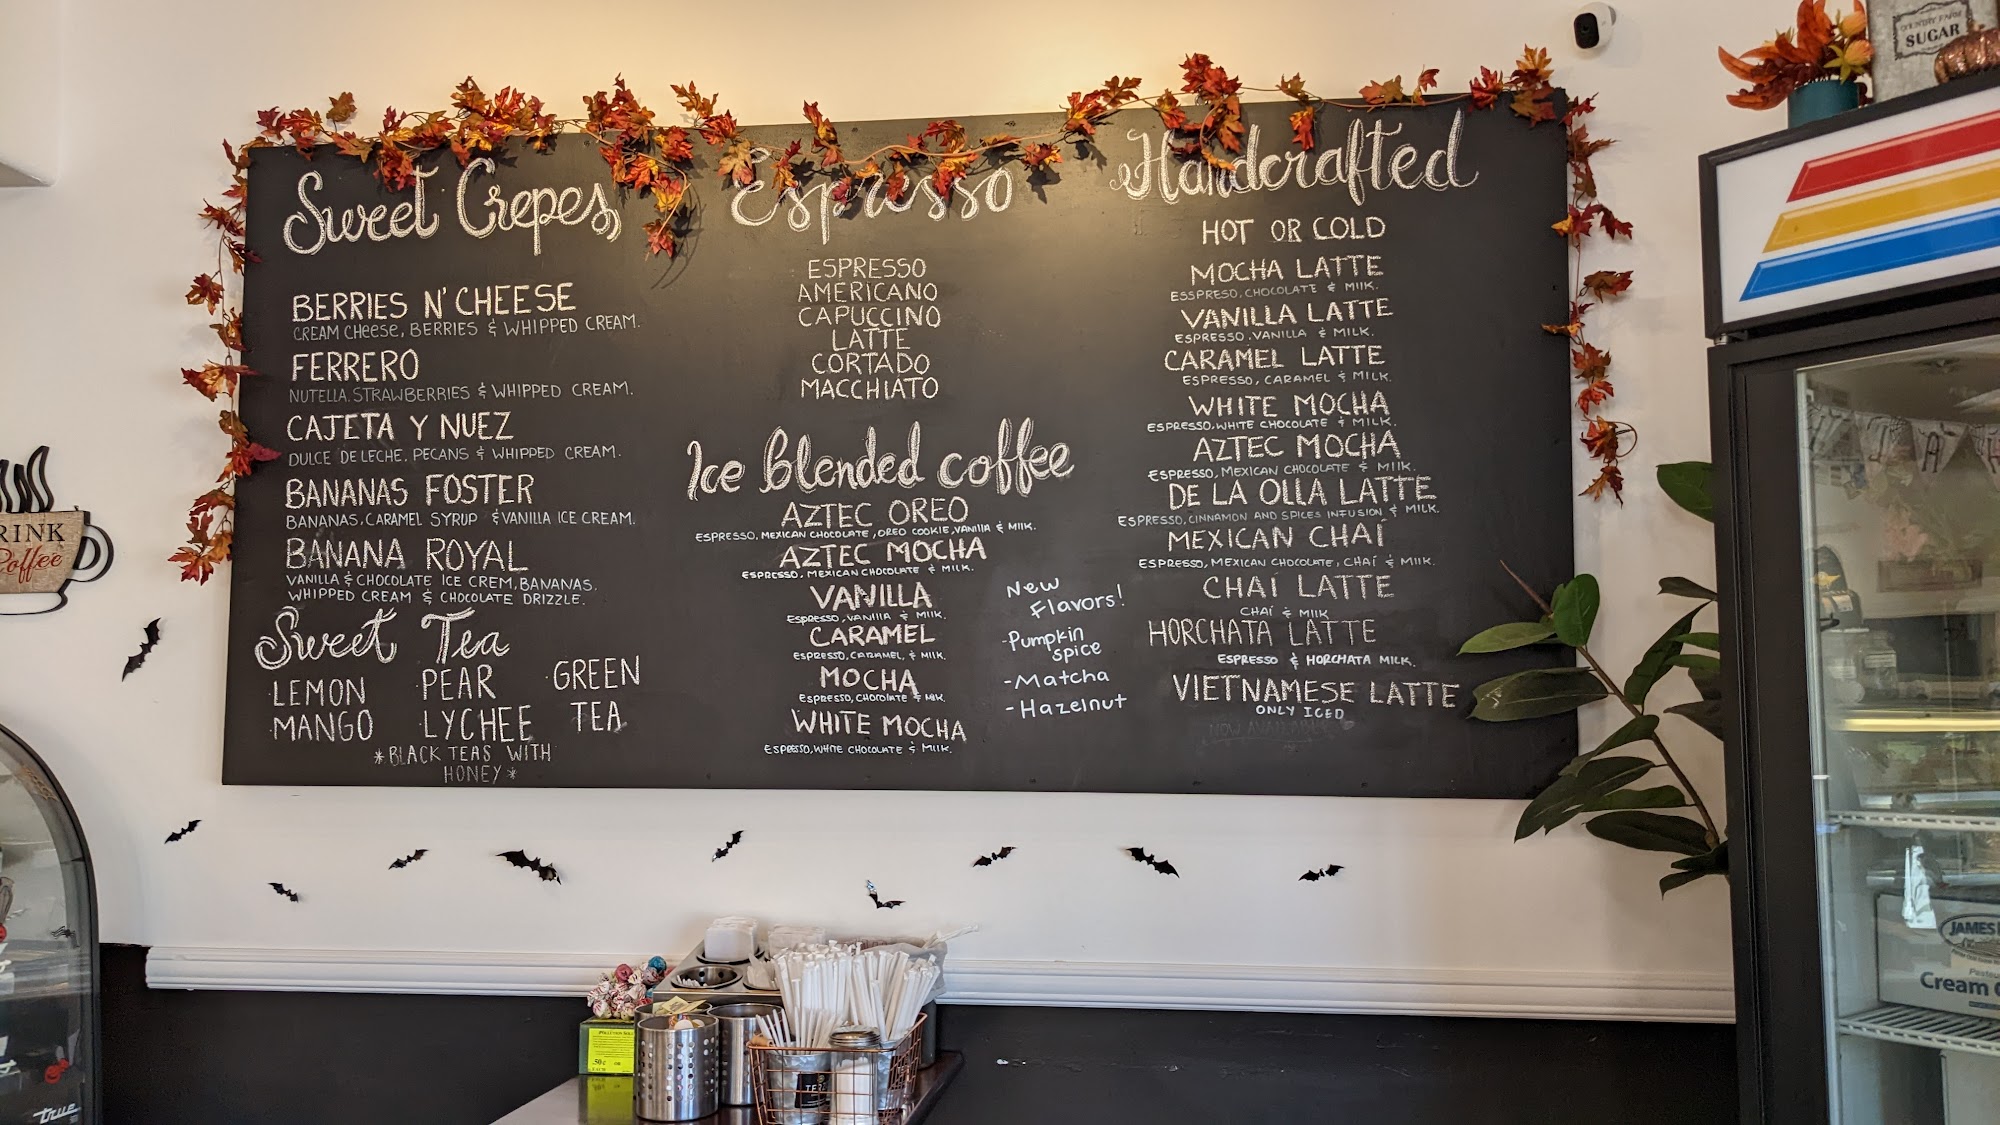 Sweet Crepes
BERRIES N' CHEESE
CREAM CHEESE, BERRIES & WHIPPED CREAM.
FERRERO
NUTELLA. STRAWBERRIES & WHIPPED CREAM.
CAJETA Y NUEZ
DULCE DE LECHE. PECANS & WHIPPED CREAM.
BANANAS FOSTER
BANANAS, CARAMEL SYRUP & VANILLA ICE CREAM.
BANANA ROYAL
VANILLA & CHOCOLATE ICE CREM, BANANAS,
WHIPPED CREAM & CHOCOLATE DRIZZLE.
Sweet Tea
·LEMON
·MANGO
·PEAR
·LYCHEE
·GREEN
TEA
*BLACK TEAS WITH
HONEY*
Espresso
ESPRESSO
AMERICANO
CAPUCCINO
LATTE
CORTADO
MACCHIATO
Ice blended coffee
AZTEC OREO
ESPRESSO, MEXICAN CHOCOLATE, OREO COOKIE, VANILLA & MILK.
AZTEC MOCHA
ESPRESSO, MEXICAN CHOCOLATE & MILK.
VANILLA
ESPRESSO, VANILLA & MILK.
CARAMEL
ESPRESSO, CARAMEL, & MILK.
MOCHA
ESPRESSO, CHOCOLATE & MILK.
WHITE MOCHA
ESPRESSO, WHITE CHOCOLATE & MILK.
New
Flavors!
-Pumpkin
spice
-Matcha
-Hazelnut
Handcrafted
HOT OR COLD
MOCHA LATTE
ESSPRESO, CHOCOLATE & MILK.
VANILLA LATTE
ESPRESSO. VANILLA & MILK.
CARAMEL LATTE
ESPRESSO, CARAMEL & MILK.
WHITE MOCHA
ESPRESSO, WHITE CHOCOLATE & MILK.
AZTEC MOCHA
ESPRESSO, MEXICAN CHOCOLATE & MILK.
DE LA OLLA LATTE
ESPRESSO, CINNAMON AND SPICES INFUSION & MILK.
MEXICAN CHAÍ
ESPRESSO, MEXICAN CHOCOLATE, CHAÍ & MILK.
CHAÍ LATTE
CHAÍ & MILK
HORCHATA LATTE
ESPRESSO & HORCHATA MILK.
VIETNAMESE LATTE
ONLY ICED
NOW AVAILABLE
RINK
Coffee
COUNTRY FARM
SUGAR
JAMES
Cream
.50¢
EACH
true